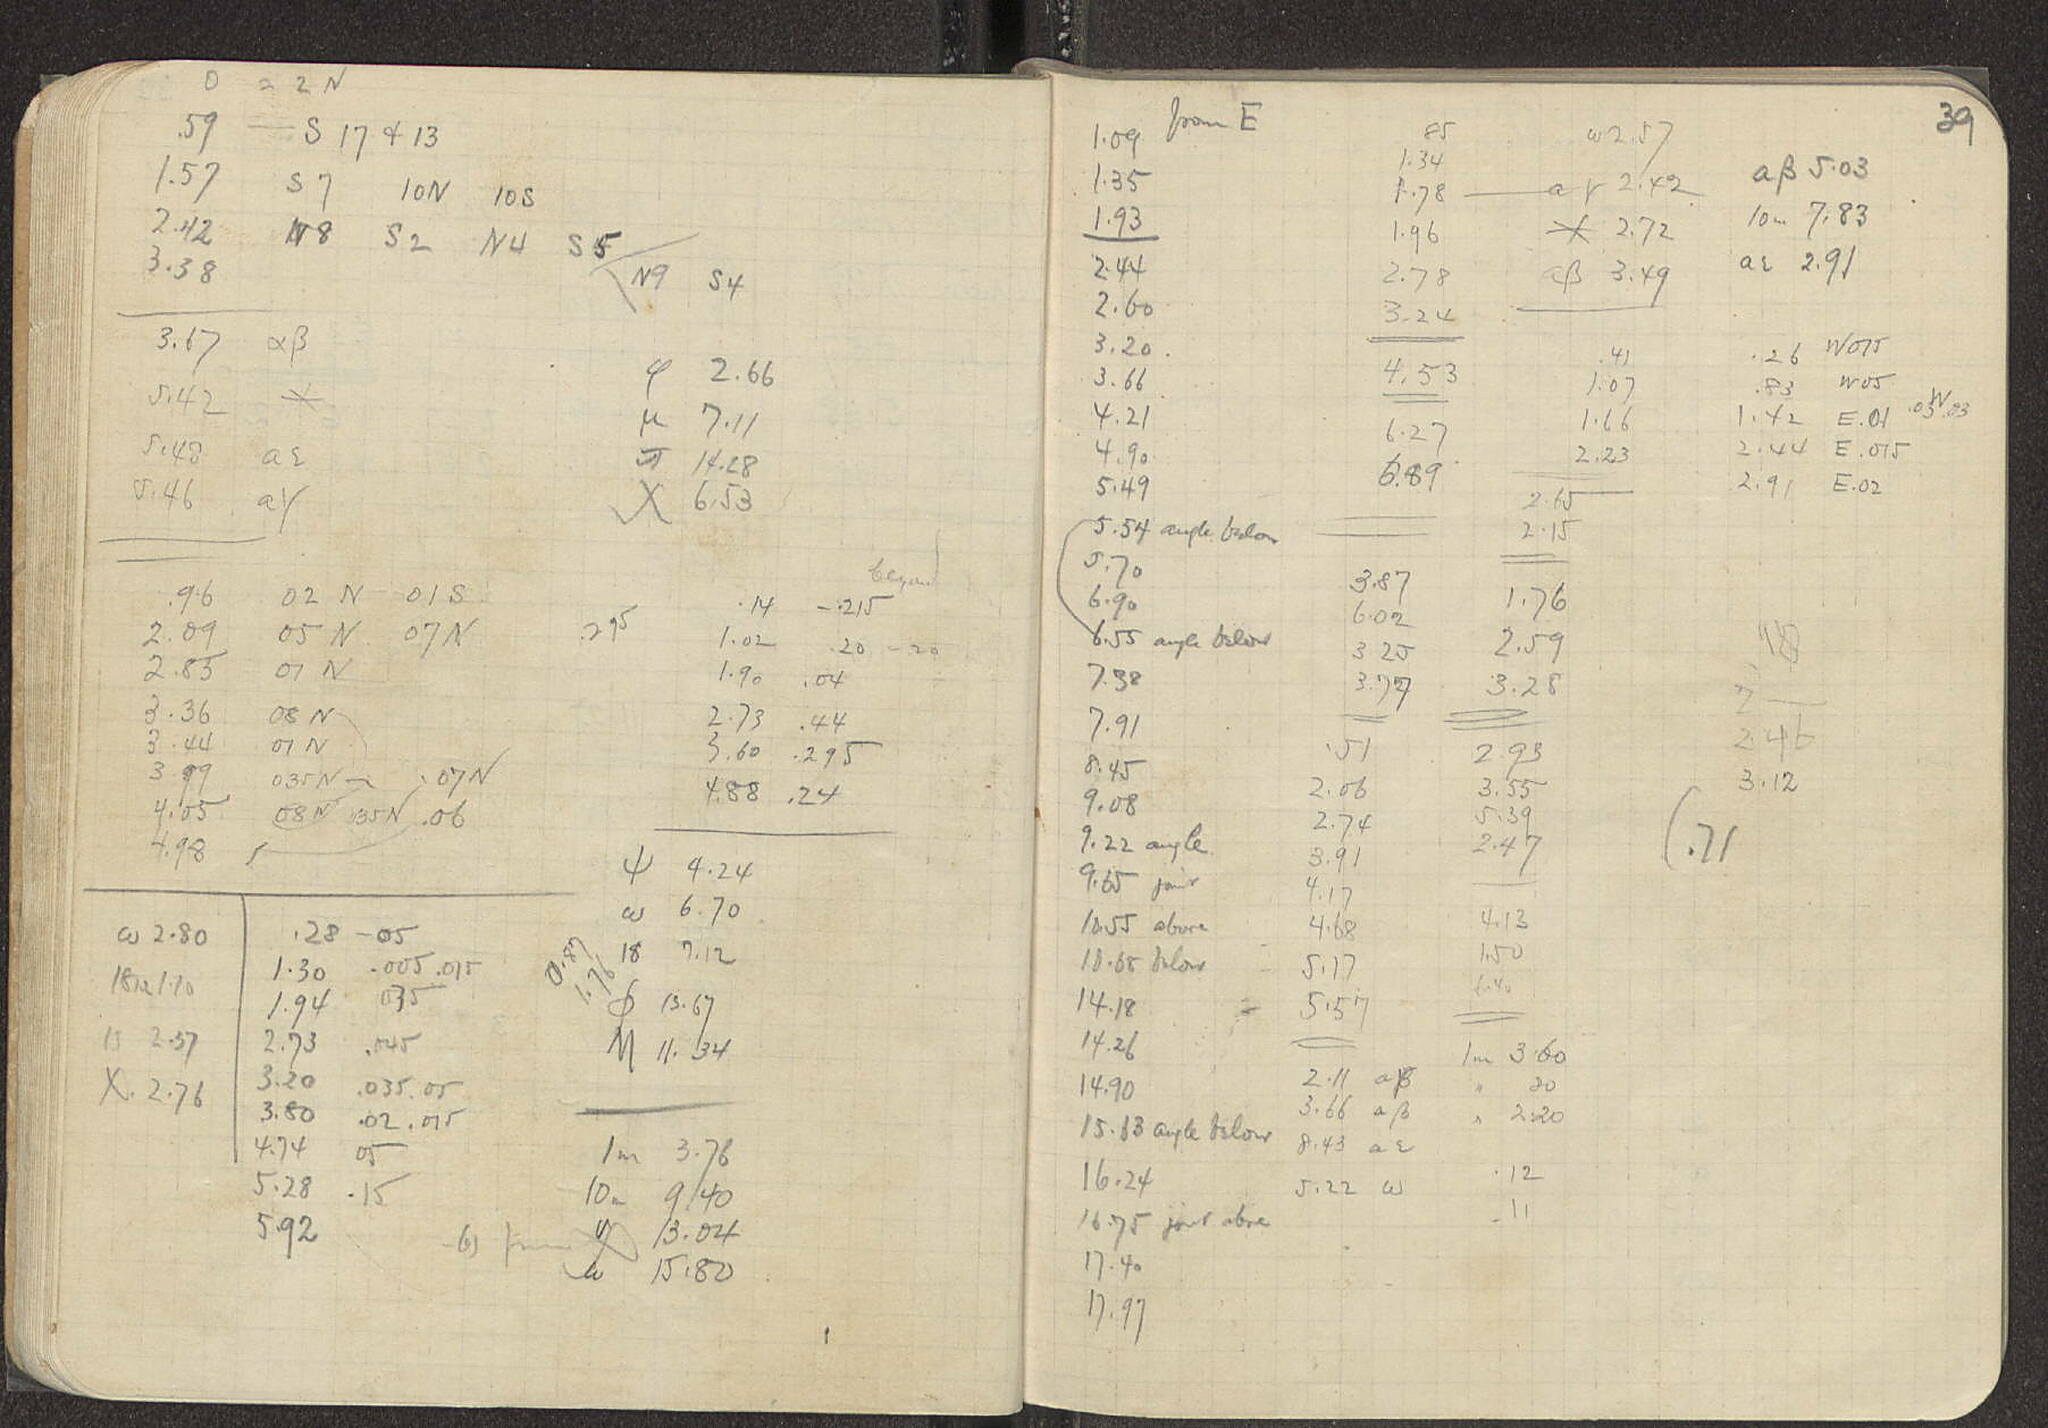 0 = 2 N
.59 — S 17 & 13
1.57 S 7 10N 10S
2.42 N8 S2 N4 S5
3.38 N9 S4
3.67 αβ
5.42
5.48 aε
5.46 aγ
φ 2.66
μ 7.11
π 14.28
X 6.53
.96 02 N 01 S
2.09 05 N 07 N
2.85 01 N
3.36 08 N
3.44 01 N
3.99 035N .07N
4.05 08N 035N .06
4.98 5
.295
beyond
.14 -.215
1.02 .20 -20
1.90 .04
2.73 .44
3.60 .295
4.88 .24
ω 2.80
1.10
13 2.57
X. 2.76
.28 -05
1.30 .005 .015
1.94 035
2.73 .045
3.20 .035 .05
3.80 .02 .015
4.74 05
5.28 .15
5.92
ψ 4.24
ω 6.70
18 7.12
ϕ 13.67
M 11.34
0.87
1.76
1m 3.76
10m 9.40
ψ 13.04
ω 15.80
39
from E
1.09
1.35
1.93
2.44
2.60
3.20
3.66
4.21
4.90
5.49
5.54 angle below
5.70
6.90
6.55 angle below
7.38
7.91
8.45
9.08
9.22 angle
9.65 joint
10.55 above
10.68 below
14.18
14.26
14.90
15.63 angle below
16.24
16.75 joint above
17.40
17.97
85
1.34
1.78 — aγ 2.42
1.96
2.78
3.24
4.53
6.27
6.89
3.87
6.02
3.25
3.77
.51
2.06
2.74
3.91
4.17
4.68
5.17
5.57
2.11 aβ
3.66 aβ
8.43 aε
5.22 ω
ω 2.57
2.72
aβ 3.49
.41
1.07
1.66
2.23
2.65
2.15
1.76
2.59
3.28
2.93
3.55
5.39
2.47
4.13
1.50
1.40
1m 3.60
" 20
" 2.20
.12
.11
aβ 5.03
10m 7.83
aε 2.91
.26 W015
.83 W05
1.42 E.01 .03 W .03
2.44 E.015
2.91 E.02
2.46
3.12
(.71